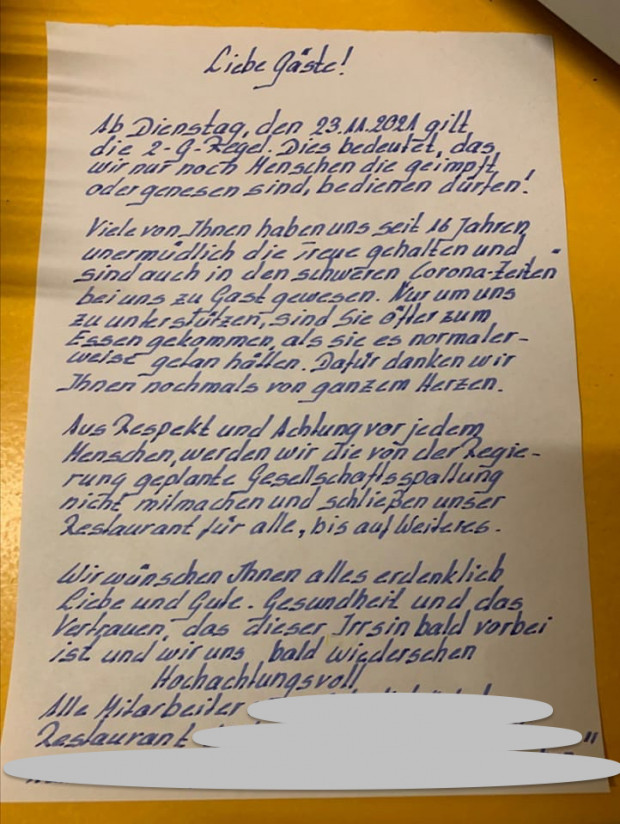 Liebe Gäste!
Ab Dienstag, den 23.11.2021 gilt
die 2-G-Regel. Dies bedeutet, das
wir nur noch Menschen die geimpft
oder genesen sind, bedienen dürfen!
Viele von Ihnen haben uns seit 16 Jahren
unermüdlich die Treue gehalten und
sind auch in den schweren "Corona-Zeiten"
bei uns zu Gast gewesen. Nur um uns
zu unterstützen, sind Sie öfter zum
Essen gekommen, als sie es normaler-
weise getan hätten. Dafür danken wir
Ihnen nochmals von ganzem Herzen.
Aus Respekt und Achtung vor jedem
Menschen, werden wir die von der Regie-
rung geplante Gesellschaftsspaltung
nicht mitmachen und schließen unser
Restaurant für alle, bis auf Weiteres.
Wir wünschen Ihnen alles erdenklich
Liebe und Gute. Gesundheit und das
Vertrauen, das dieser Irrsin bald vorbei
ist und wir uns bald wiedersehen
Hochachtungsvoll
Alle Mitarbeiter
Restaurant